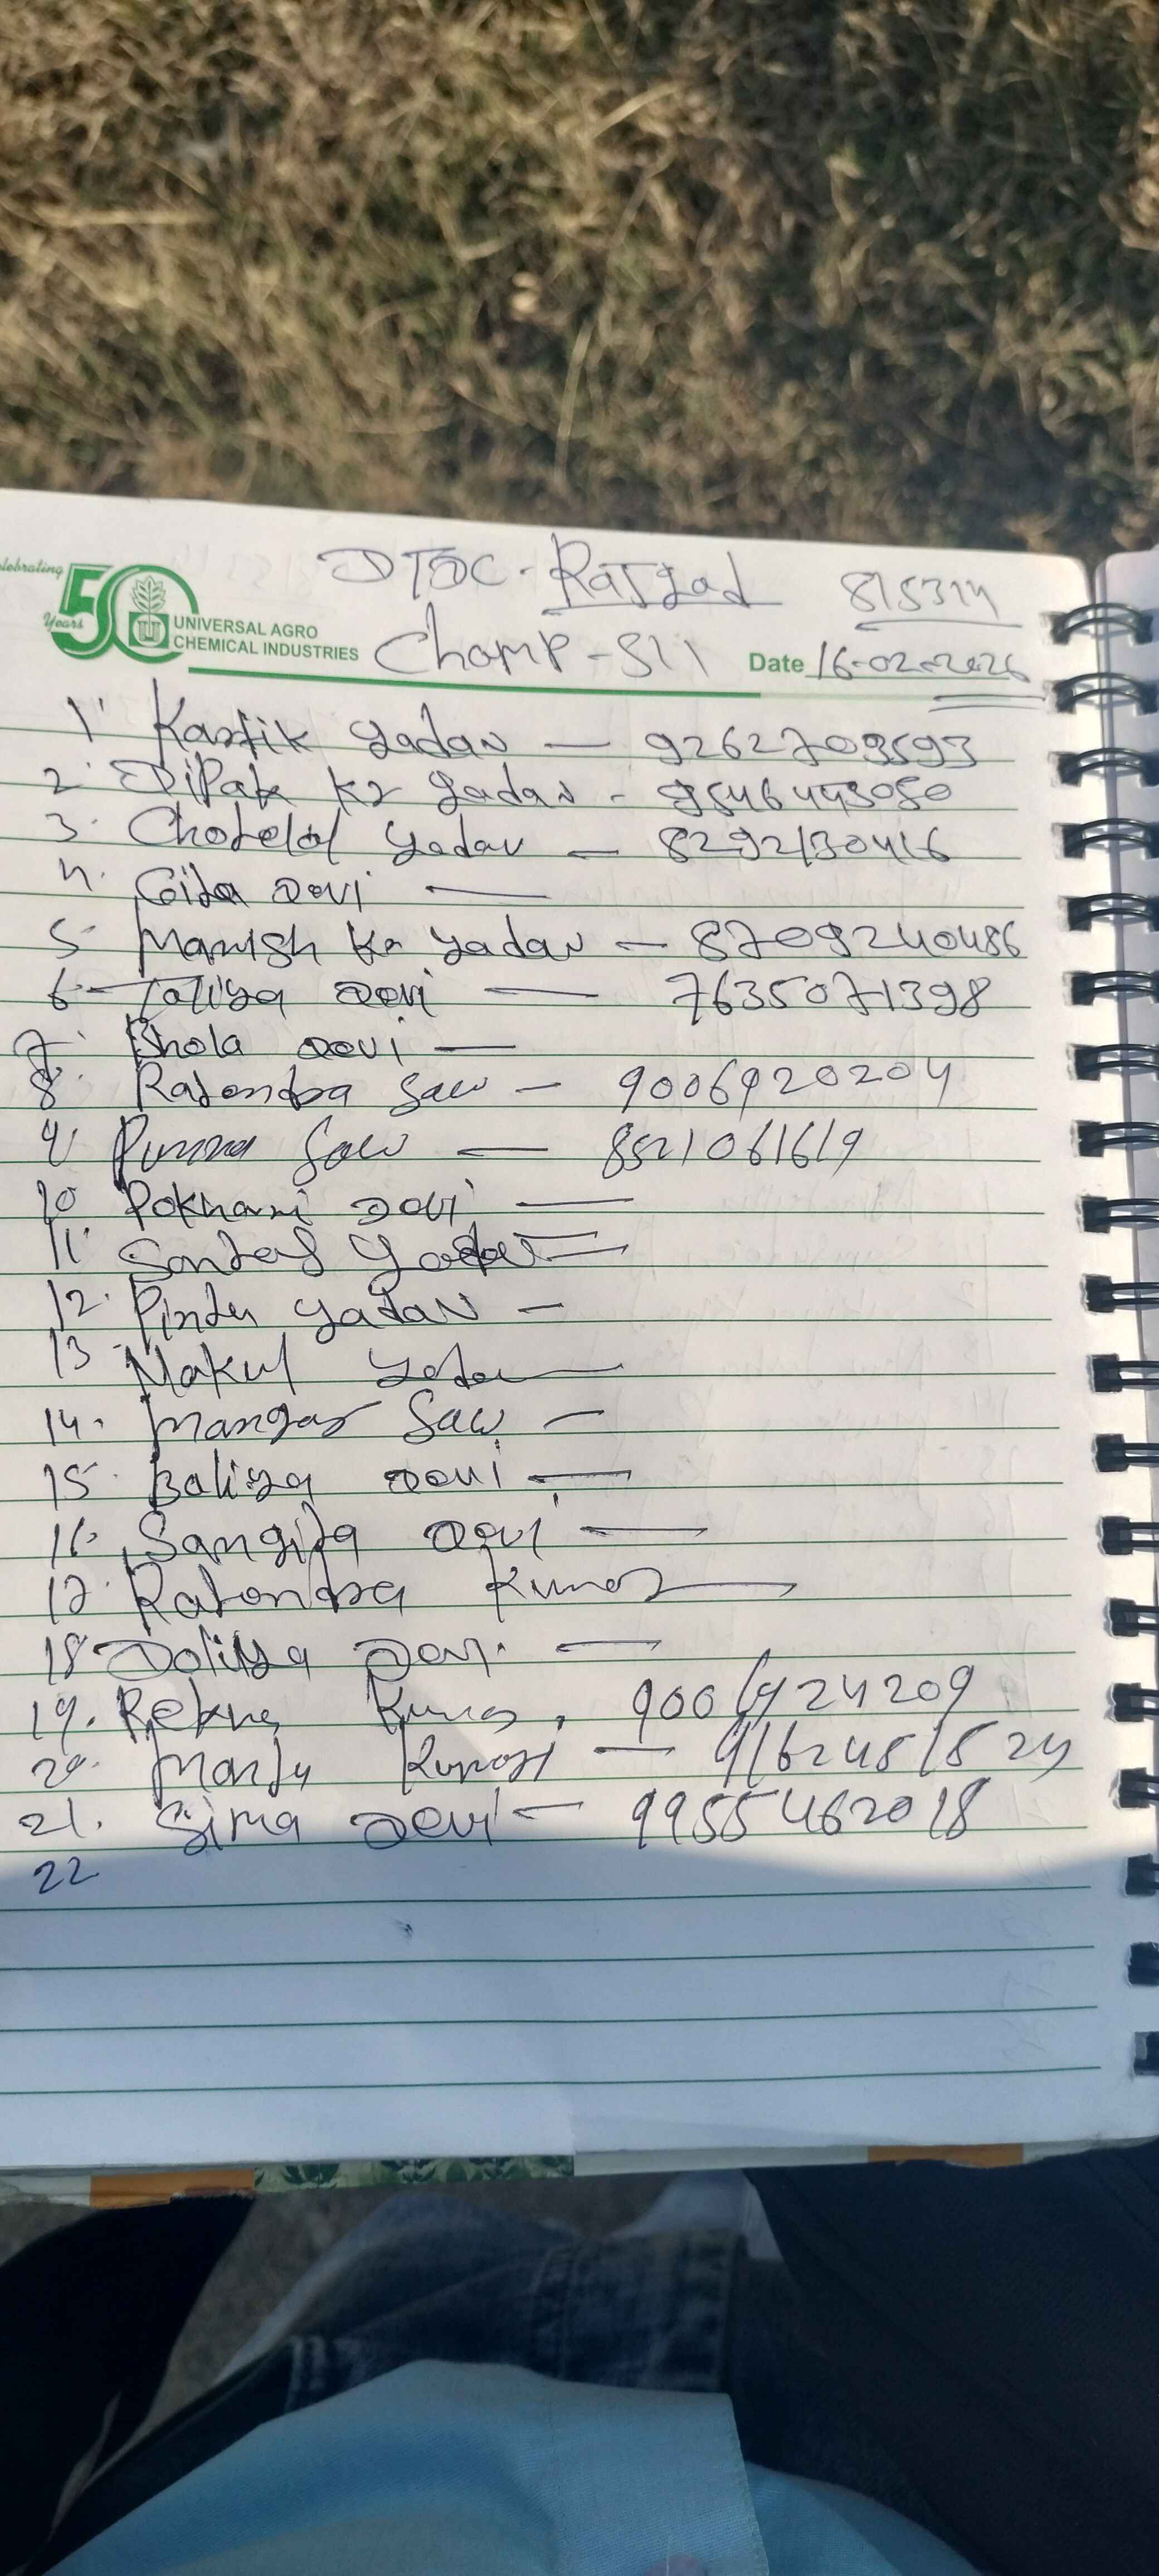 Celebrating
50
Years
UNIVERSAL AGRO
CHEMICAL INDUSTRIES
815314
Champ - 511
Date 16-02-2026
1. Kartik Yadav — 9262709593
2. Dipak Kr Yadav -
3. Chotelal Yadav — 8292130416
4. Gita Devi —
5. Manish Kr Yadav — 8709240486
6. Taliya Devi — 7635071398
7. Bhola Devi —
8. Rajendra Saw — 9006920204
9. Punna Saw — 8521061619
10 Pokhani Devi —
11. Yadav
12. Pintu Yadav —
13 Nakul Yadav
14. Mangar Saw —
15. Baliya Devi —
16. Sangita Devi —
17. Rajendra Kumar
18 Doliya Devi —
19. Rekha
20. Manju —
21. Sima Devi — 9955462018
22